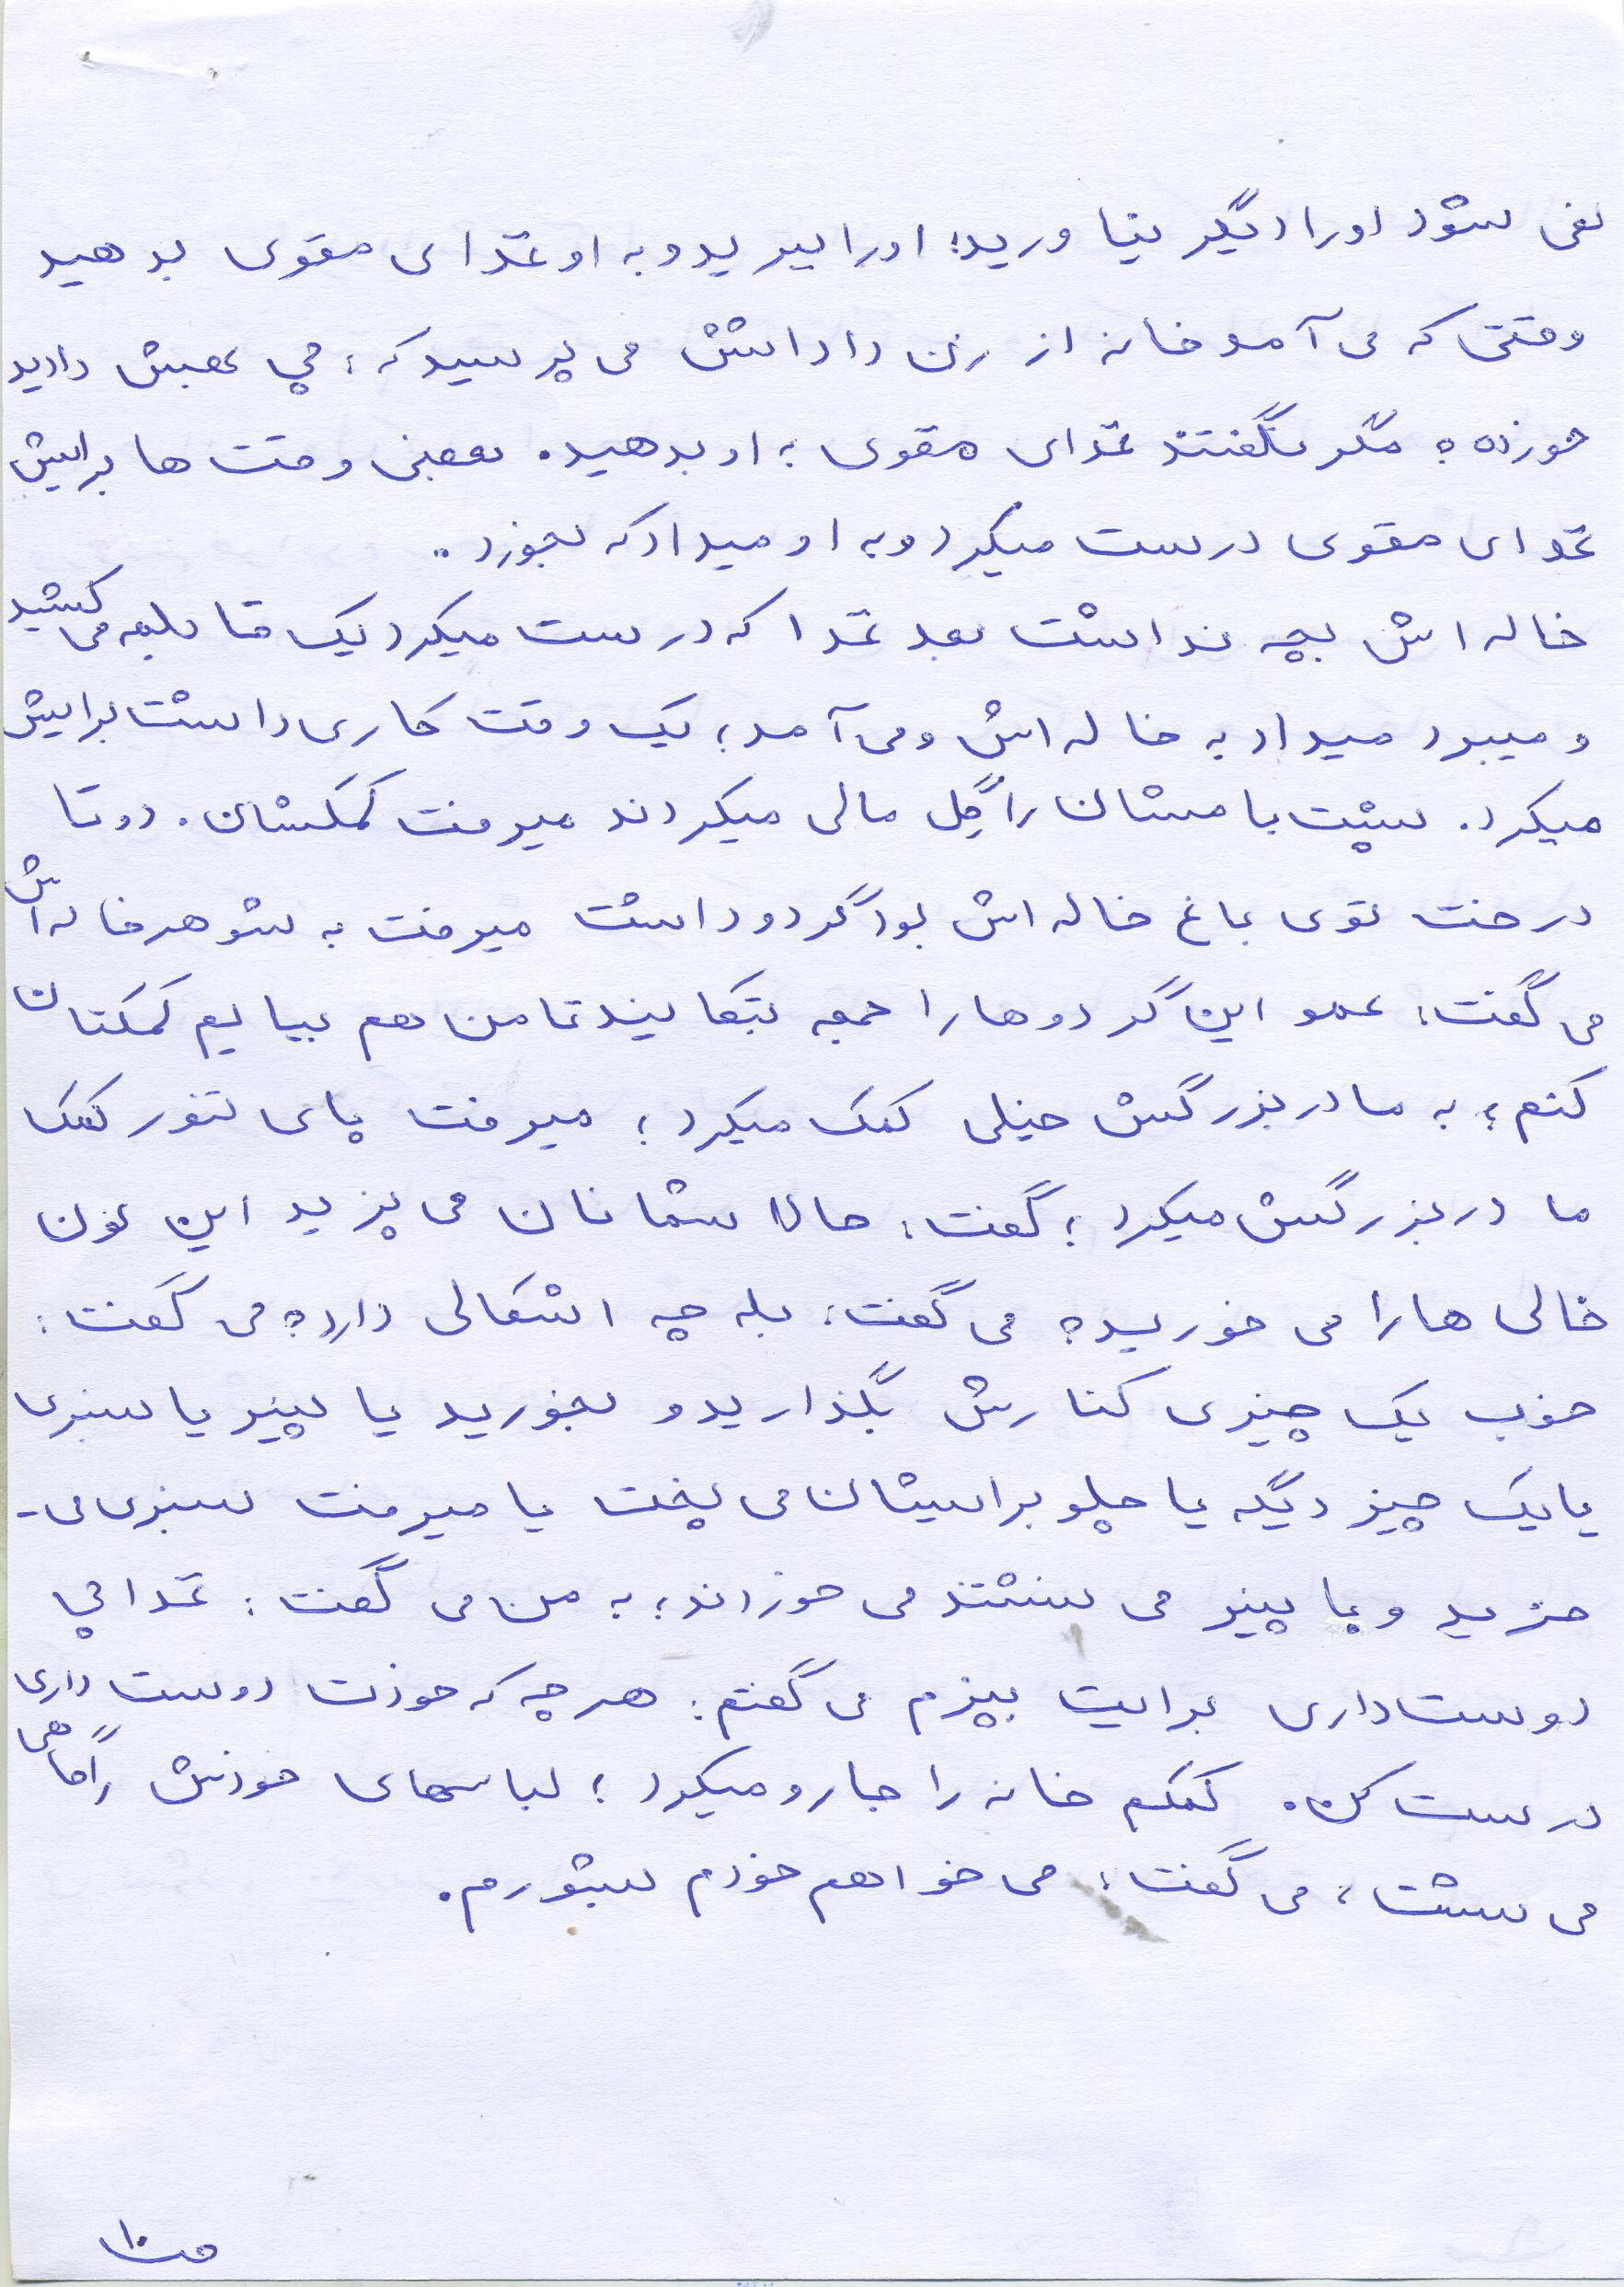 نمی شود او را دیگر نیاورید؛ او را ببرید و به او غذای مقوی بدهید
وقتی که می آمد خانه از زن داداشش می پرسید که: چی بهش دادید
خورده؟ مگر نگفتند غذای مقوی به او بدهید. بعضی وقت ها برایش
غذای مقوی درست میکرد و به او میداد که بخورد..
خاله اش بچه نداشت بعد غذا که درست میکرد یک قابلمه می کشید
و میبرد میداد به خاله اش و می آمد؛ یک وقت کاری داشت برایش
میکرد. پشت بامشان را گِل مالی میکردند میرفت کمکشان. دو تا
درخت توی باغ خاله اش بود گردو داشت میرفت به شوهر خاله اش
می گفت: عمو این گردوها را جمعه بتکانید تا من هم بیایم کمکتان
کنم؛ به مادربزرگش خیلی کمک میکرد؛ میرفت پای تنور کمک
مادربزرگش میکرد؛ گفت: حالا شما نان می پزید این نون
خالی ها را می خورید؟ می گفت: بله چه اشکالی دارد؟ می گفت:
خوب یک چیزی کنارش بگذارید و بخورید یا پنیر یا سبزی
یا یک چیز دیگه یا چلو برایشان می پخت یا میرفت سبزی می-
خرید و با پنیر می نشستند می خوراند؛ به من می گفت: غذا چی
دوست داری برایت بپزم می گفتم: هر چه که خودت دوست داری
درست کن. کمکم خانه را جارو میکرد؛ لباسهای خودش را گاهی
می شست، می گفت: می خواهم خودم بشورم.
ص۱۰